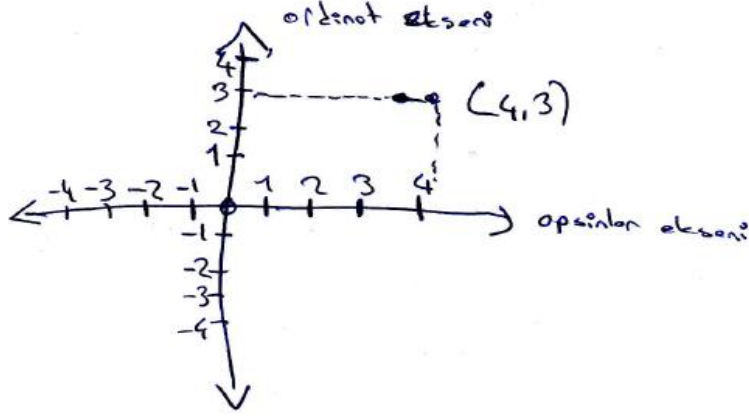 ordinat ekseni
4
3
(4,3)
2
1
-4 -3 -2 -1 1 2 3 4
apsinlar ekseni
-1
-2
-3
-4